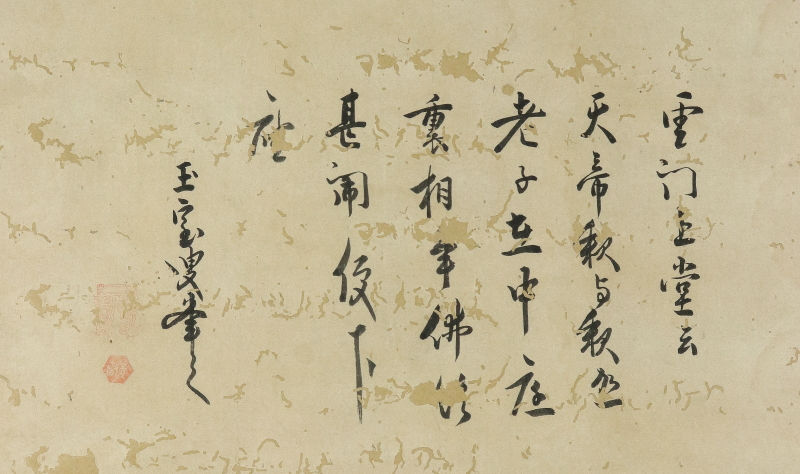 雲門上堂云
天帝釈与釈迦
老子在中庭
裏相争佛法
甚閙便下
座
玉室叟筆之